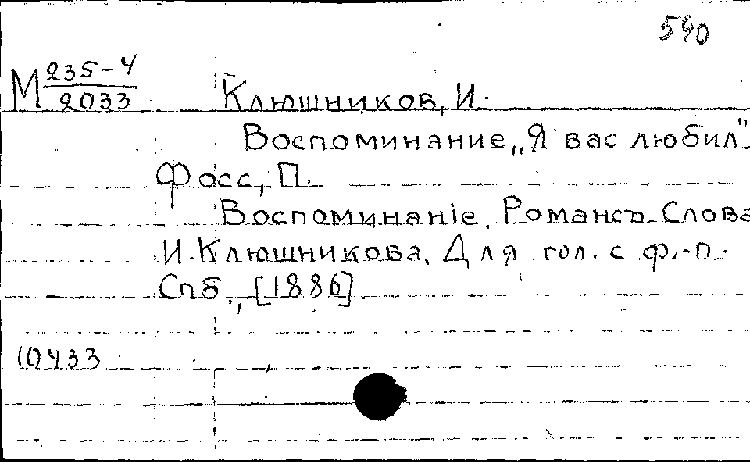 540
М 235-4
2033
Клюшников, И.
Воспоминание „Я вас любил"
Фосс, П.
Воспоминанiе. Романсъ. Слова
И. Клюшникова. Для гол. с ф.-п.
Спб., [1886]
10433